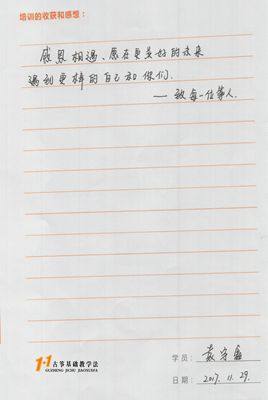 培训的收获和感想：
感恩相遇、愿在更美好的未来
遇到更棒的自己和你们.
——致每一位筝人.
1+1 古筝基础教学法
GUZHENG JICHU JIAOXUEFA
学员：袁
日期：2017. 11. 29.